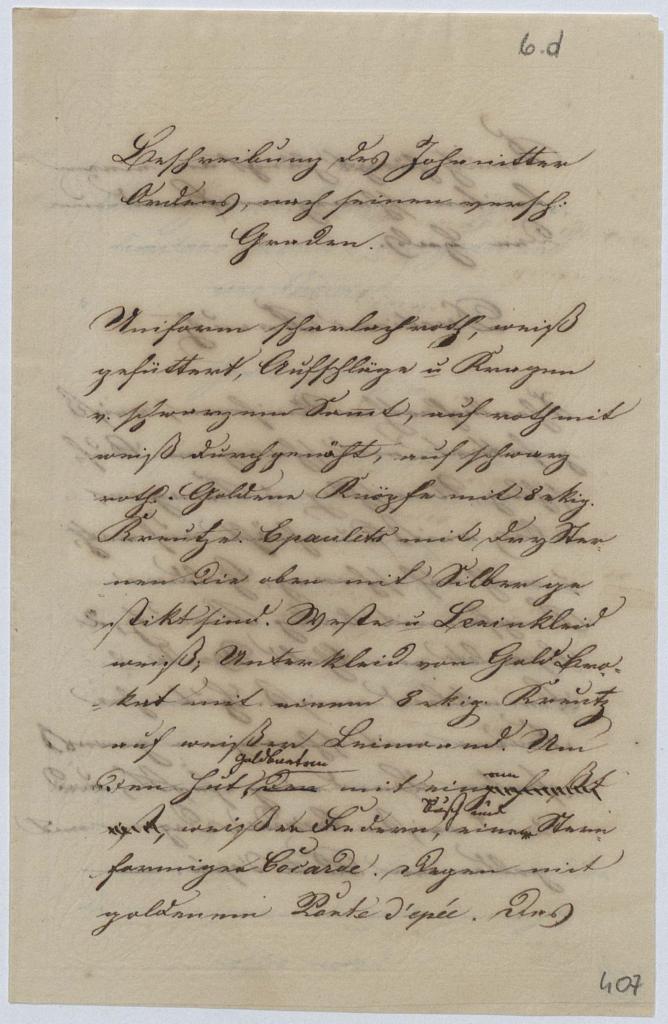 6.d
Beschreibung des Johanitter
Ordens, nach seinen versch:
Graden.
Uniform scharlachroth, weiß
gefüttert, Aufschläge u Kragen
v. schwarzem Samt, auf roth mit
weiß durchgenäht, auf schwarz
roth. Goldene Knöpfe mit 8 ekig.
Kreutze. Epaulets mit drey Ster-
nen die oben mit Silber ge
stikt sind. Weste u Beinkleid
weiß, Unterkleid von Gold Bro-
-kat mit einem 8 ekig. Kreutz
auf weißer Leinwand. Um
den Hut goldbortem mit
weißen Federn, und einer Stern
formigen Cocarde. Degen mit
goldenem Porte d'epée. Das
407